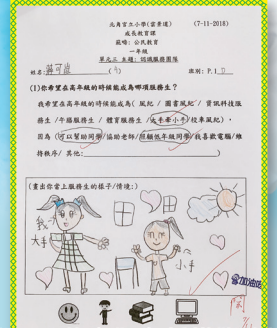 北角官立小學(雲景道) (7-11-2018)
成長教育課
範疇：公民教育
一年級
單元三 主題：認識服務團隊
姓名: ( ) 班別：P.1
(1)你希望在高年級的時候能成為哪項服務生？
我希望在高年級的時候能成為( 風紀 / 圖書風紀 / 資訊科技服
務生 / 午膳服務生 / 體育服務生 / 大手牽小手 / 校車風紀)，
因為 (可以幫助同學/協助老師/照顧低年級同學/我喜歡電腦/維
持秩序/ 其他: )
(畫出你當上服務生的樣子/情境:)
我
大手
小手
加油